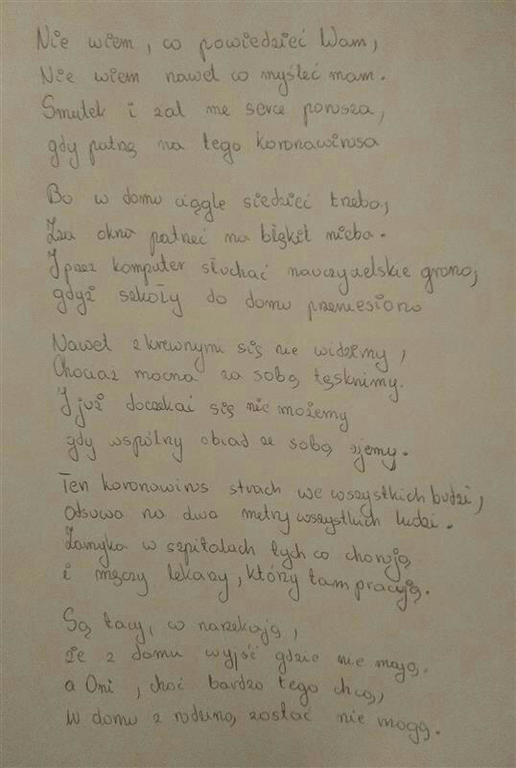 Nie wiem, co powiedzieć Wam,
Nie wiem nawet co myśleć mam.
Smutek i żal me serce porusza,
gdy patrzę na tego koronawirusa
Bo w domu ciągle siedzieć trzeba,
Zza okna patrzeć na błękit nieba.
I przez komputer słuchać nauczycielskie grono,
gdyż szkoły do domu przeniesiono
Nawet z krewnymi się nie widzimy,
Chociaż mocno za sobą tęsknimy.
I już doczekać się nie możemy
gdy wspólny obiad ze sobą zjemy.
Ten koronawirus strach we wszystkich budzi,
odsuwa na dwa metry wszystkich ludzi.
Zamyka w szpitalach tych co chorują
i męczy lekarzy, którzy tam pracują.
Są tacy, co narzekają,
że z domu wyjść gdzie nie mają.
a Oni, choć bardzo tego chcą,
w domu z rodziną zostać nie mogą.